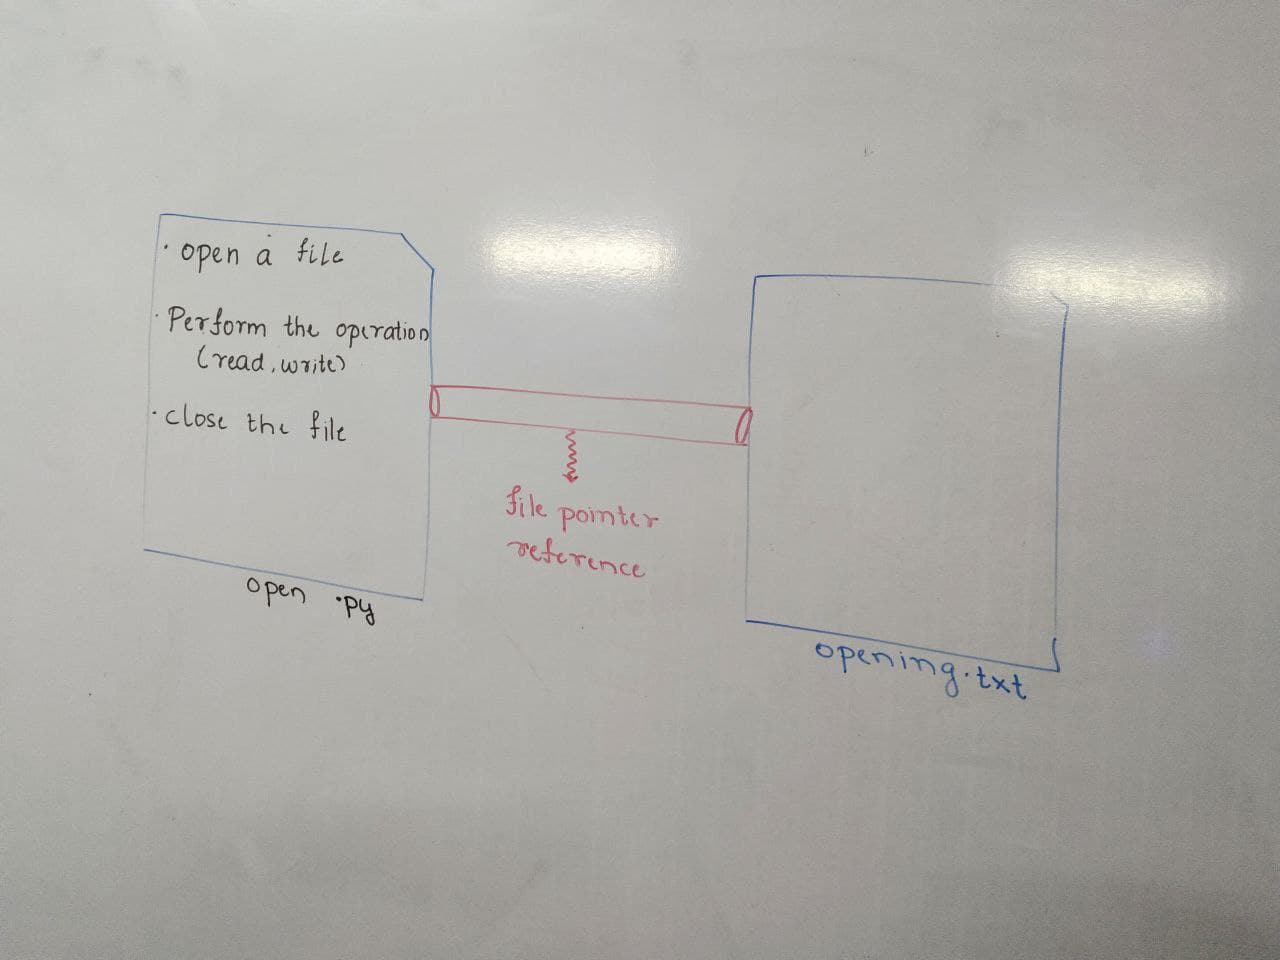 · open a file
· Perform the operation
(read, write)
· close the file
open .py
file pointer
reference
opening.txt